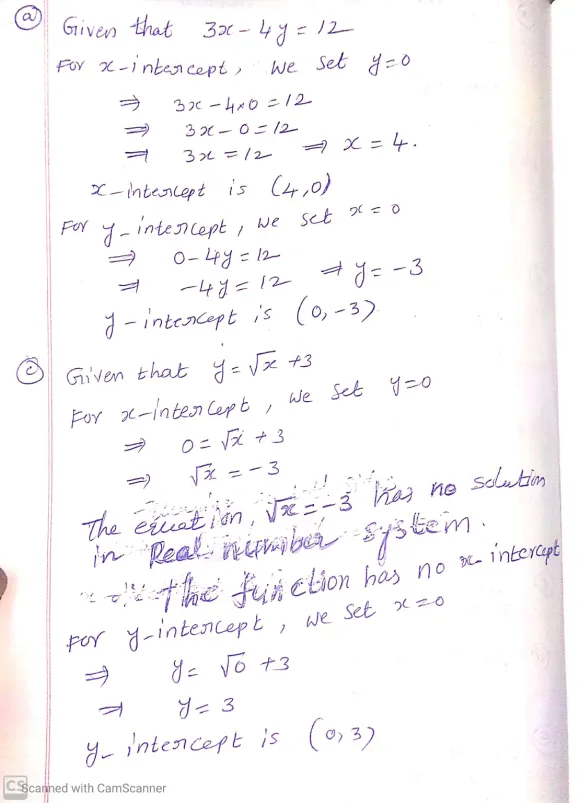 (a) Given that 3x - 4y = 12
For x-intercept, we set y=0
⇒ 3x - 4×0 = 12
⇒ 3x - 0 = 12
⇒ 3x = 12 ⇒ x = 4.
x-intercept is (4,0)
For y-intercept, we set x = 0
⇒ 0 - 4y = 12
⇒ -4y = 12 ⇒ y = -3
y-intercept is (0,-3)
(c) Given that y = √x + 3
For x-intercept, we set y=0
⇒ 0 = √x + 3
⇒ √x = -3
The equation, √x = -3 has no solution
in Real number system.
the function has no x-intercept
For y-intercept, we set x=0
⇒ y = √0 + 3
⇒ y = 3
y-intercept is (0,3)
CS Scanned with CamScanner